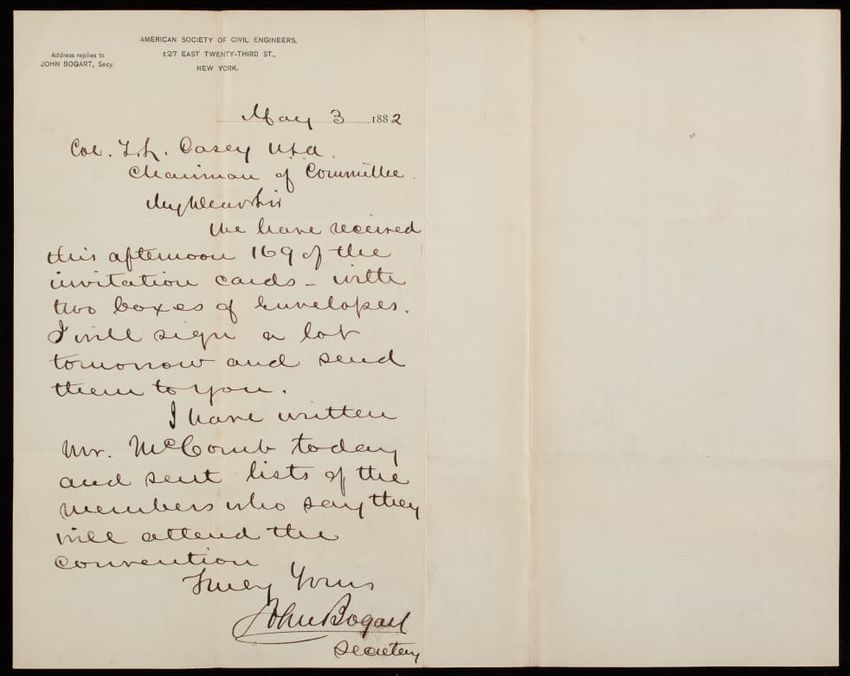 AMERICAN SOCIETY OF CIVIL ENGINEERS,
127 EAST TWENTY-THIRD ST.,
NEW YORK.
Address replies to
JOHN BOGART, Secy.
May 3 1882
Col. T. L. Casey U.S.A.
Chairman of Committee.
My Dear Sir
We have received
this afternoon 169 of the
invitation cards - with
two boxes of Envelopes.
I will sign a lot
tomorrow and send
them to you.
I have written
Mr. McComb today
and sent lists of the
members who say they
will attend the
convention
Truly Yours
John Bogart
Secretary